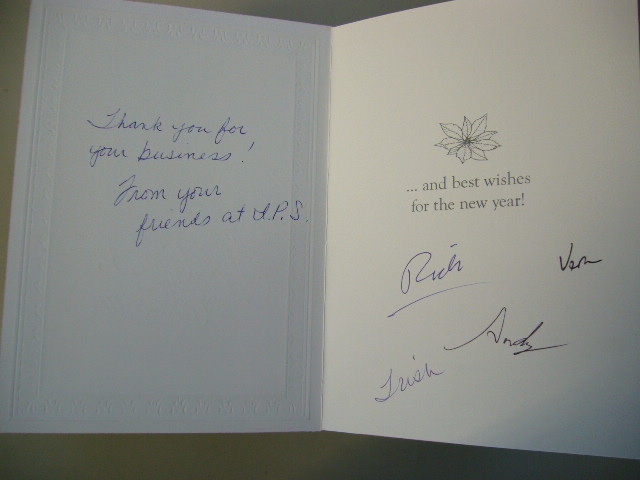 Thank you for
your business!
From your
friends at I.P.S.
... and best wishes
for the new year!
Rich
Vern
Andy
Trish